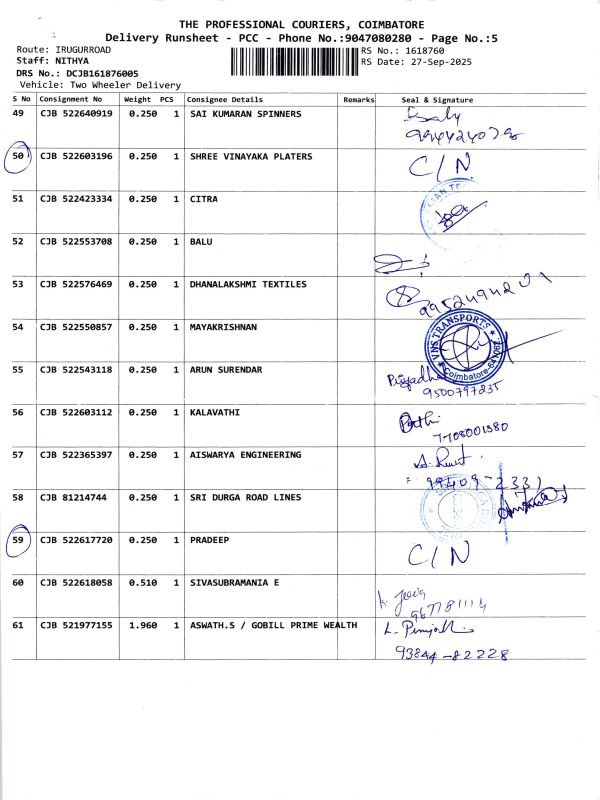 THE PROFESSIONAL COURIERS, COIMBATORE
Delivery Runsheet - PCC - Phone No.:9047080280 - Page No.:5
Route: IRUGURROAD
RS No.: 1618760
Staff: NITHYA
RS Date: 27-Sep-2025
DRS No.: DCJB161876005
Vehicle: Two Wheeler Delivery
S No Consignment No Weight PCS Consignee Details Remarks Seal & Signature
49 CJB 522640919 0.250 1 SAI KUMARAN SPINNERS
50 CJB 522603196 0.250 1 SHREE VINAYAKA PLATERS C/N
51 CJB 522423334 0.250 1 CITRA
52 CJB 522553708 0.250 1 BALU
53 CJB 522576469 0.250 1 DHANALAKSHMI TEXTILES
9952494201
54 CJB 522550857 0.250 1 MAYAKRISHNAN
VNS TRANSPORTS
Coimbatore-641062
55 CJB 522543118 0.250 1 ARUN SURENDAR
Priyadha
9500797235
56 CJB 522603112 0.250 1 KALAVATHI
7708001380
57 CJB 522365397 0.250 1 AISWARYA ENGINEERING
58 CJB 81214744 0.250 1 SRI DURGA ROAD LINES
59 CJB 522617720 0.250 1 PRADEEP C/N
60 CJB 522618058 0.510 1 SIVASUBRAMANIA E
9677811114
61 CJB 521977155 1.960 1 ASWATH.S / GOBILL PRIME WEALTH
93844-82228